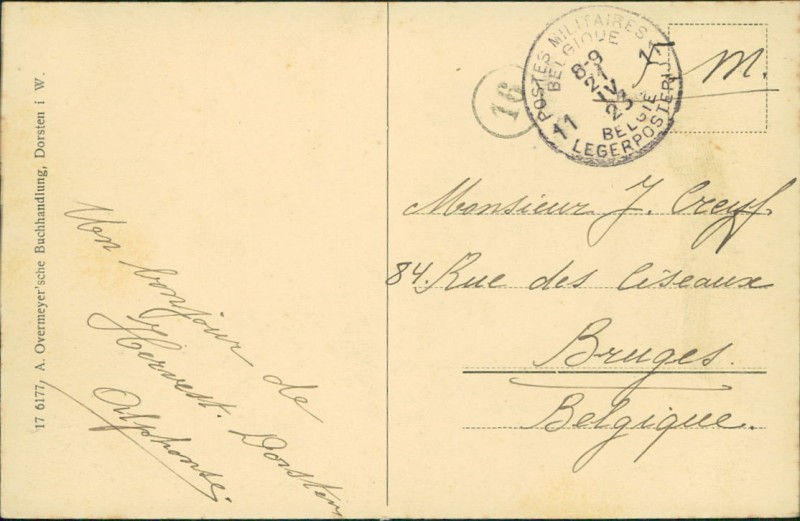 17 6177, A. Overmeyer'sche Buchhandlung, Dorsten i W.
Un bonjour de
Hervest. Dorsten
Alphonse.
16
POSTES MILITAIRES
BELGIQUE
8-9
21
IV
23
11
11
BELGIE
LEGERPOSTERIJ
m.
Monsieur J. Creyf
84. Rue des Ciseaux
Bruges.
Belgique.